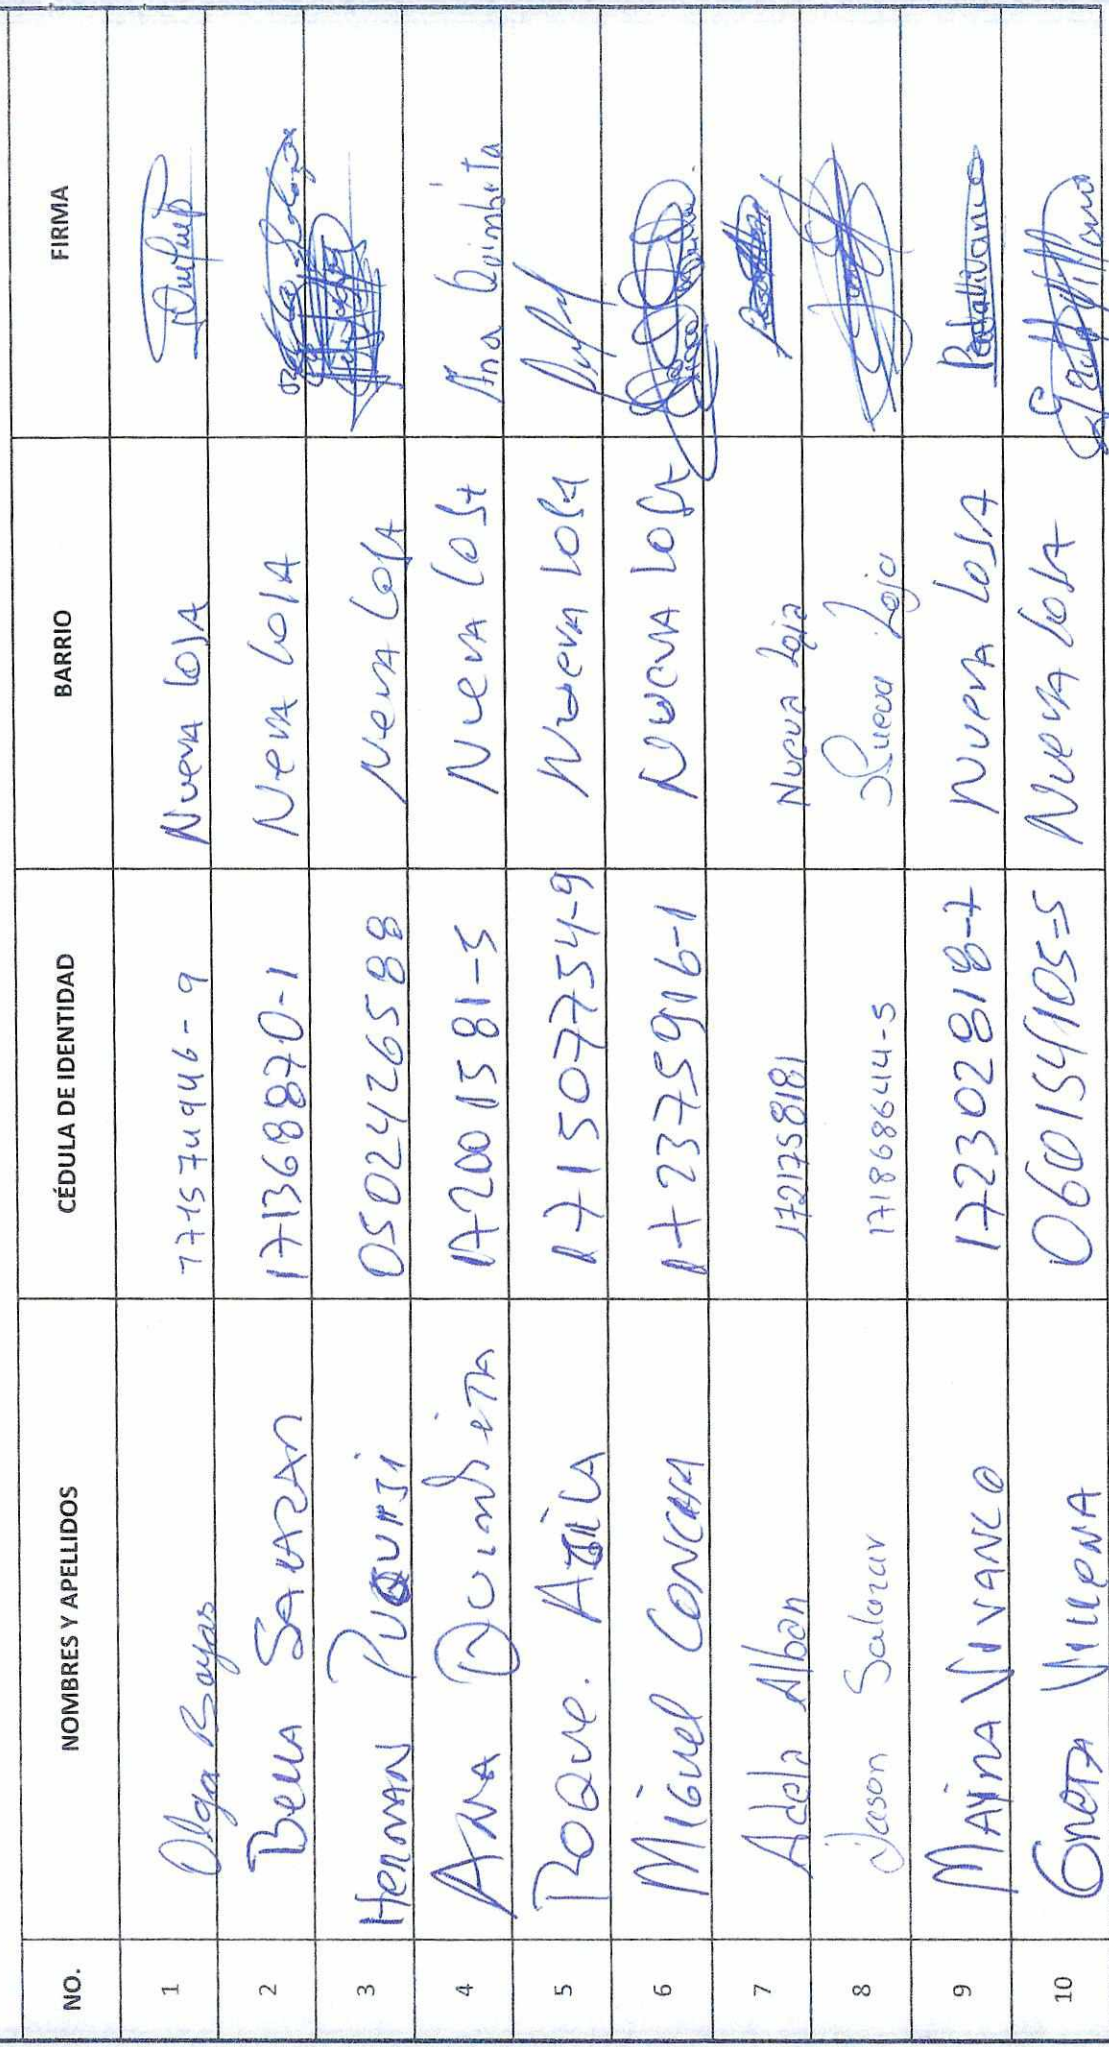 NO. NOMBRES Y APELLIDOS CÉDULA DE IDENTIDAD BARRIO FIRMA
1 Olga Bayas 171574946-9 Nueva LOJA
2 Bella SALAZAR 171368870-1 Neva LOJA
3 HERNAN PUQUJI 0502426588 Neva LOJA
4 ANA Quimbita 172001581-5 Nueva LOJA Ana Quimbita
5 ROQUE. 171507754-9 Nueva LOJA
6 MIGUEL CONCHA 172375916-1 Nueva LOJA
7 Adela Alban 1721758181 Nueva Loja
8 Jason Salazar 171868644-5 Nueva Loja
9 MAYRA VIVANCO 172302818-7 Nueva LOJA
10 GRETA VILLENA 060154105-5 Nueva LOJA